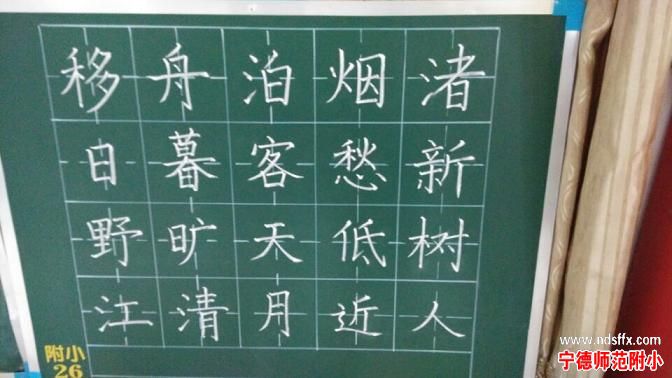 移舟泊烟渚
日暮客愁新
野旷天低树
江清月近人
附小
26
www.ndsffx.com
宁德师范附小